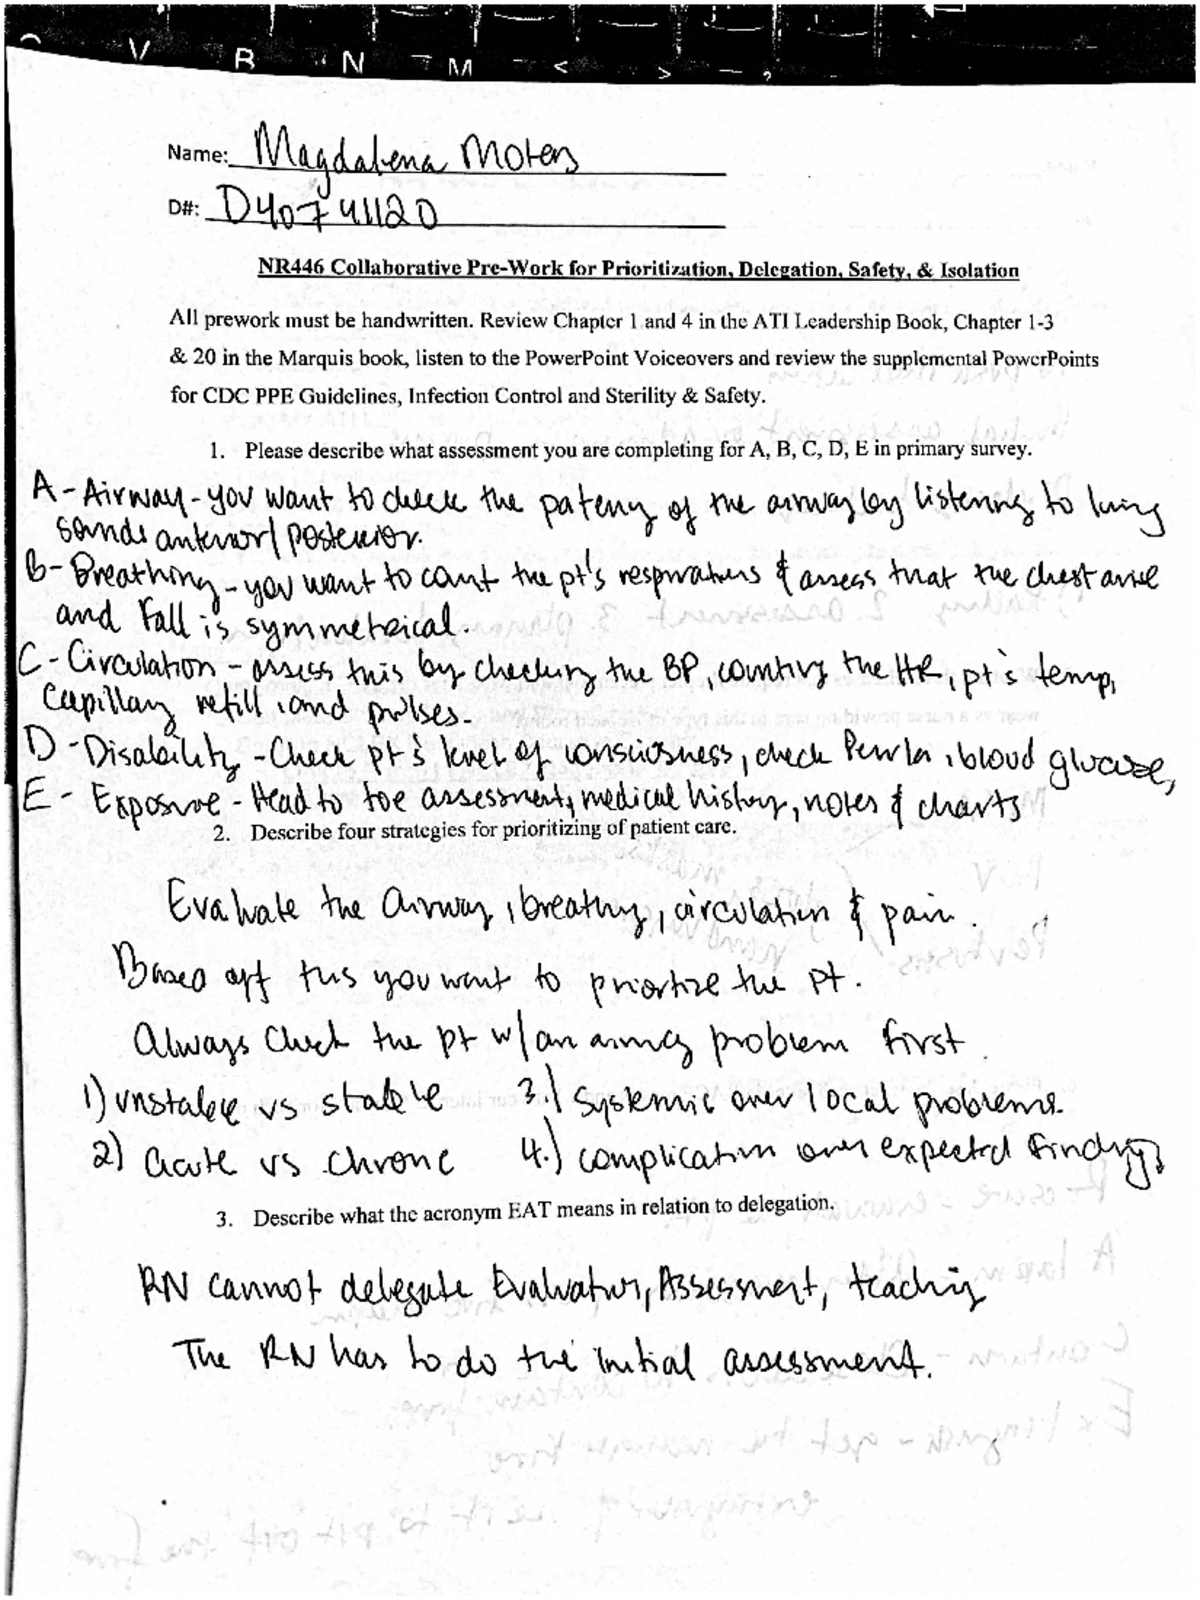 V B N M < > ?
Name: Magdalena Moters
D#: D40741120
NR446 Collaborative Pre-Work for Prioritization, Delegation, Safety, & Isolation
All prework must be handwritten. Review Chapter 1 and 4 in the ATI Leadership Book, Chapter 1-3
& 20 in the Marquis book, listen to the PowerPoint Voiceovers and review the supplemental PowerPoints
for CDC PPE Guidelines, Infection Control and Sterility & Safety.
1. Please describe what assessment you are completing for A, B, C, D, E in primary survey.
A - Airway - you want to check the pateny of the airway by listening to lung
sounds anterior/posterior.
B - Breathing - you want to count the pt's respirations & assess that the chest arise
and fall is symmetrical.
C - Circulation - assess this by checking the BP, counting the HR, pt's temp,
capillary refill, and pulses.
D - Disability - Check pt's level of consciosness, check Perrla, blood glucose,
E - Exposure - Head to toe assessment, medical history, notes & charts
2. Describe four strategies for prioritizing of patient care.
Evaluate the airway, breathing, circulation & pain.
Based off this you want to priortize the pt.
Always Check the pt w/ an airway problem first.
1) unstable vs stable 3.) Systemic over local problems.
2) acute vs chronic 4.) complication over expected findings
3. Describe what the acronym EAT means in relation to delegation.
RN cannot delegate Evaluation, Assessment, teaching
The RN has to do the initial assessment.